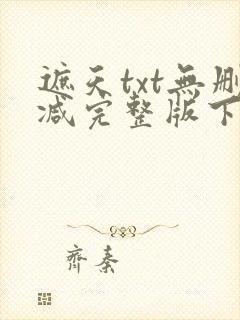 遮天txt無刪
減完整版下
齊秦